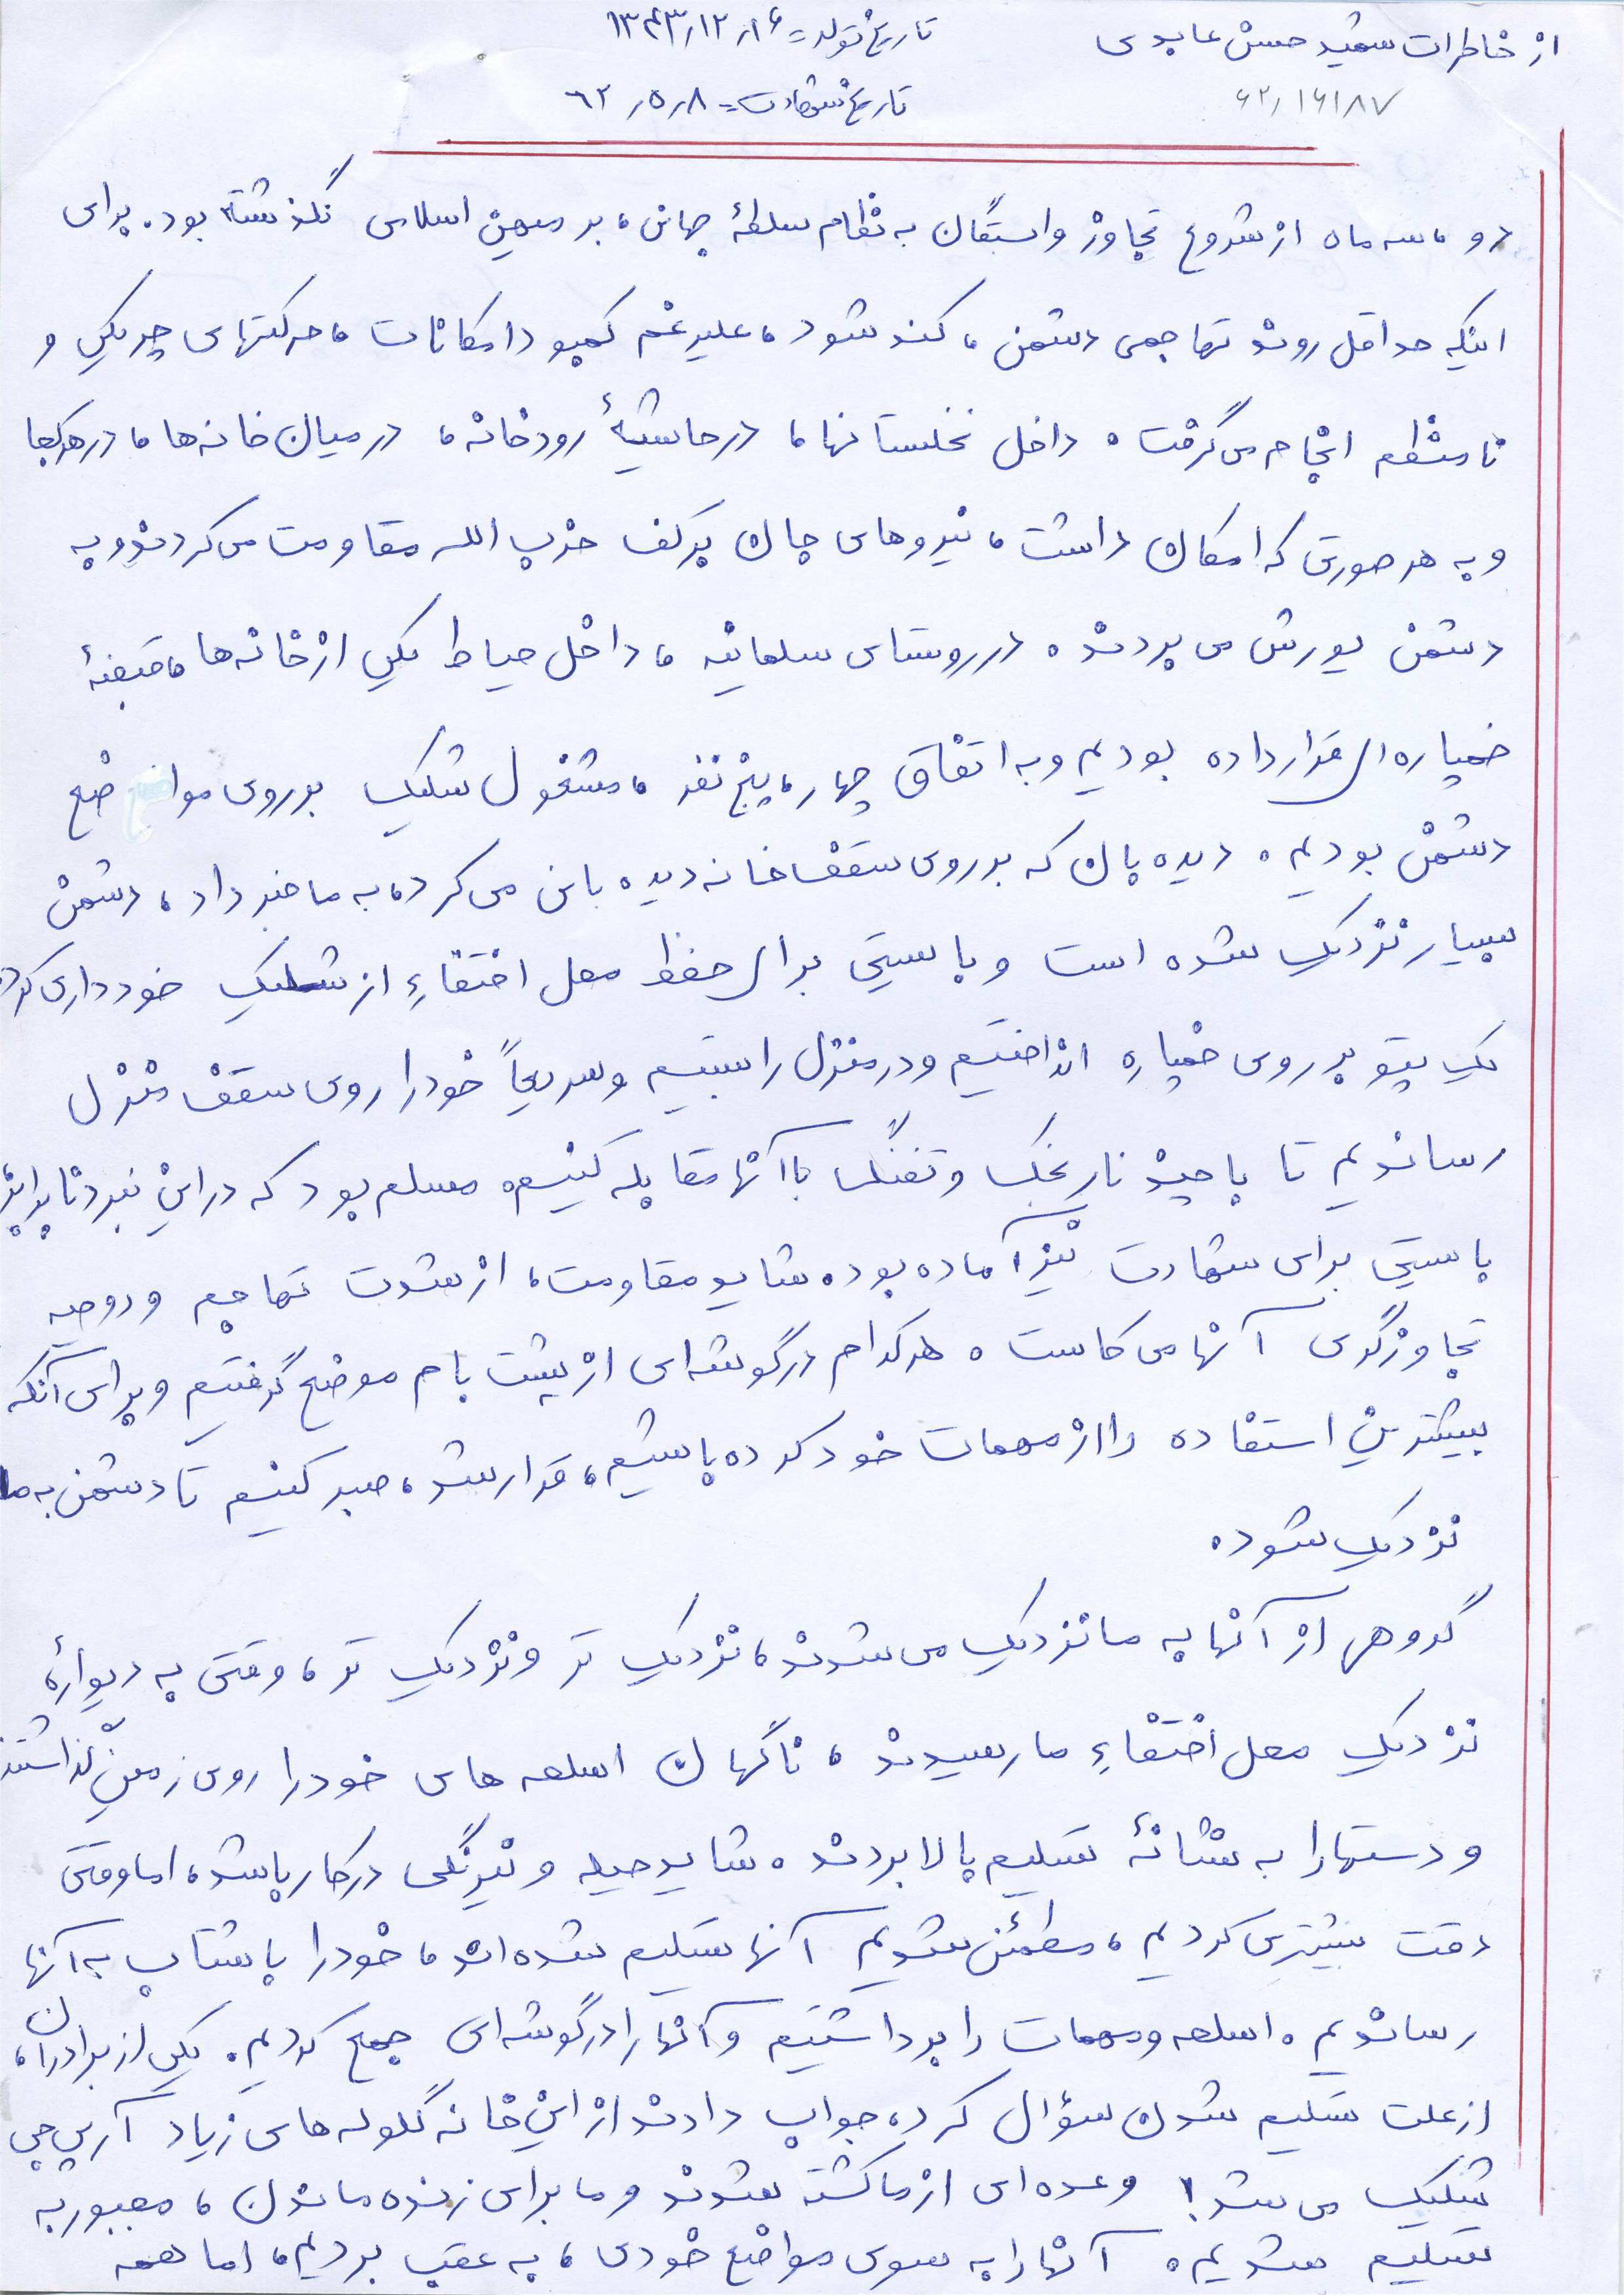 از خاطرات شهید حسن عابدی
تاریخ تولد = ۱۳۴۳٫۱۲٫۱۶
۶۲٫۱۶۱۸۷
تاریخ شهادت = ۶۲٫۵٫۸
دو، سه ماه از شروع تجاوز وابستگان به نظام سلطۀ جهانی، بر میهن اسلامی نگذشته بود. برای
اینکه حداقل روند تهاجمی دشمن، کند شود، علیرغم کمبود امکانات، حرکتهای چریکی و
نامنظم انجام می گرفت. داخل نخلستانها، در حاشیۀ رودخانه، در میان خانه ها، در هرکجا
و به هر صورتی که امکان داشت، نیروهای جان برکف حزب الله مقاومت می کردند و به
دشمن یورش می بردند. در روستای سلمانیه، داخل حیاط یکی از خانه ها، قبضۀ
خمپاره ای قرار داده بودیم و به اتفاق چهار، پنج نفر، مشغول شلیک بر روی مواضع
دشمن بودیم. دیده بان که بر روی سقف خانه دیده بانی می کرد، به ما خبر داد، دشمن
بسیار نزدیک شده است و بایستی برای حفظ محل اختفاءِ از شلیک خودداری کرد.
یک پتو بر روی خمپاره انداختیم و در منزل را بستیم و سریعاً خود را روی سقف منزل
رساندیم تا با چند نارنجک و تفنگ با آنها مقابله کنیم. مسلم بود که در این نبرد نابرابر
بایستی برای شهادت نیز آماده بود. شاید مقاومت، از شدت تهاجم و روحیه
تجاوزگری آنها می کاست. هر کدام در گوشه ای از پشت بام موضع گرفتیم و برای آنکه
بیشترین استفاده را از مهمات خود کرده باشیم، قرار شد، صبر کنیم تا دشمن به ما
نزدیک شود.
گروهی از آنها به ما نزدیک می شدند، نزدیک تر و نزدیک تر، وقتی به دیوارۀ
نزدیک محل اختفاءِ ما رسیدند، ناگهان اسلحه های خود را روی زمین گذاشتند
و دستها را به نشانۀ تسلیم بالا بردند. شاید حیله و نیرنگی در کار باشد، اما وقتی
دقت بیشتری کردیم، مطمئن شدیم آنها تسلیم شده اند، خود را با شتاب به آنها
رساندیم. اسلحه و مهمات را برداشتیم و آنها را در گوشه ای جمع کردیم. یکی از برادران،
از علت تسلیم شدن سؤال کرد، جواب دادند از این خانه گلوله های زیاد آرپی جی
شلیک می شد! و عده ای از ما کشته شدند و ما برای زنده ماندن، مجبور به
تسلیم شدیم. آنها را به سوی مواضع خودی، به عقب بردیم، اما همه